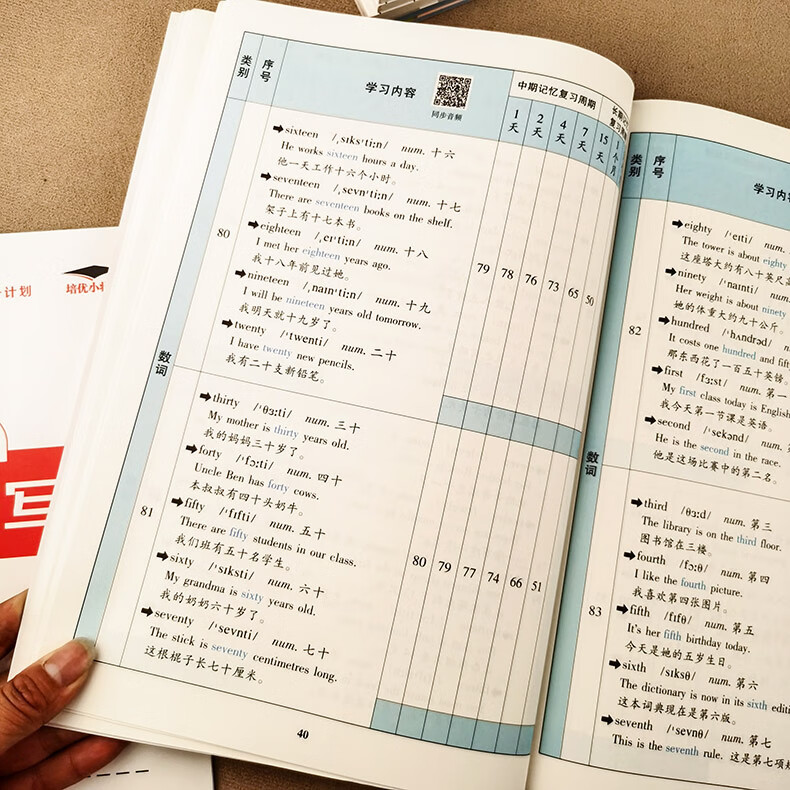 类别
序号
学习内容
同步音频
中期记忆复习周期
1天
2天
4天
7天
15天
1个月
数词
80
➡sixteen /ˌsɪksˈtiːn/ num. 十六
He works sixteen hours a day.
他一天工作十六个小时。
➡seventeen /ˌsevnˈtiːn/ num. 十七
There are seventeen books on the shelf.
架子上有十七本书。
➡eighteen /ˌeɪˈtiːn/ num. 十八
I met her eighteen years ago.
我十八年前见过她。
➡nineteen /ˌnaɪnˈtiːn/ num. 十九
I will be nineteen years old tomorrow.
我明天就十九岁了。
➡twenty /ˈtwenti/ num. 二十
I have twenty new pencils.
我有二十支新铅笔。
79 78 76 73 65 50
81
➡thirty /ˈθɜːti/ num. 三十
My mother is thirty years old.
我的妈妈三十岁了。
➡forty /ˈfɔːti/ num. 四十
Uncle Ben has forty cows.
本叔叔有四十头奶牛。
➡fifty /ˈfɪfti/ num. 五十
There are fifty students in our class.
我们班有五十名学生。
➡sixty /ˈsɪksti/ num. 六十
My grandma is sixty years old.
我的奶奶六十岁了。
➡seventy /ˈsevnti/ num. 七十
The stick is seventy centimetres long.
这根棍子长七十厘米。
80 79 77 74 66 51
40
类别
序号
学习内容
数词
82
➡eighty /ˈeɪti/ num.
The tower is about eighty
这座塔大约有八十英尺高
➡ninety /ˈnaɪnti/ num.
Her weight is about ninety
她的体重大约九十公斤。
➡hundred /ˈhʌndrəd/ num.
It costs one hundred and fifty
那东西花了一百五十英镑。
➡first /fɜːst/ num. 第一
My first class today is English
我今天第一节课是英语。
➡second /ˈsekənd/ num.
He is the second in the race.
他是这场比赛中的第二名。
83
➡third /θɜːd/ num. 第三
The library is on the third floor.
图书馆在三楼。
➡fourth /fɔːθ/ num. 第四
I like the fourth picture.
我喜欢第四张图片。
➡fifth /fɪfθ/ num. 第五
It's her fifth birthday today.
今天是她的五岁生日。
➡sixth /sɪksθ/ num. 第六
The dictionary is now in its sixth editi
这本词典现在是第六版。
➡seventh /ˈsevnθ/ num. 第七
This is the seventh rule. 这是第七项规
计划
培优小
写